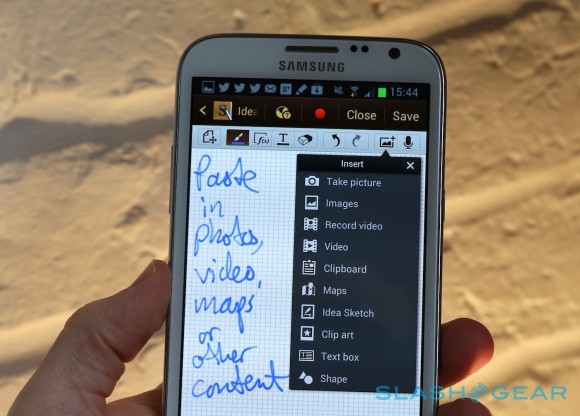 SAMSUNG
15:44
S Idea Close Save
f(x) T
Insert
Take picture
Images
Record video
Video
Clipboard
Maps
Idea Sketch
Clip art
Text box
Shape
Paste
in
photos,
video,
maps
or
other
content
SLASHGEAR